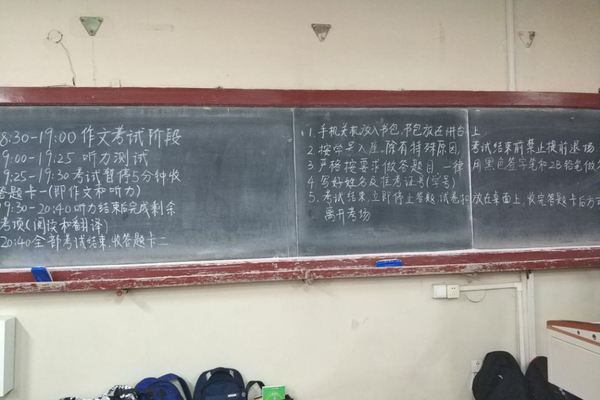 8:30-19:00 作文考试阶段
9:00-19:25 听力测试
9:25-19:30 考试暂停5分钟收
答题卡一(即作文和听力)
19:30-20:40 听力结束后完成剩余
考项(阅读和翻译)
20:40 全部考试结束,收答题卡二
1. 手机关机放入书包,书包放在讲台上
2. 按学号入座,除有特殊原因,考试结束前禁止提前退场
3. 严格按要求做答题目,一律用黑色签字笔和2B铅笔做
4. 写好姓名及准考证号(学号)
5. 考试结束,立即停止答题,试卷放在桌面上,收完答题卡后方可
离开考场